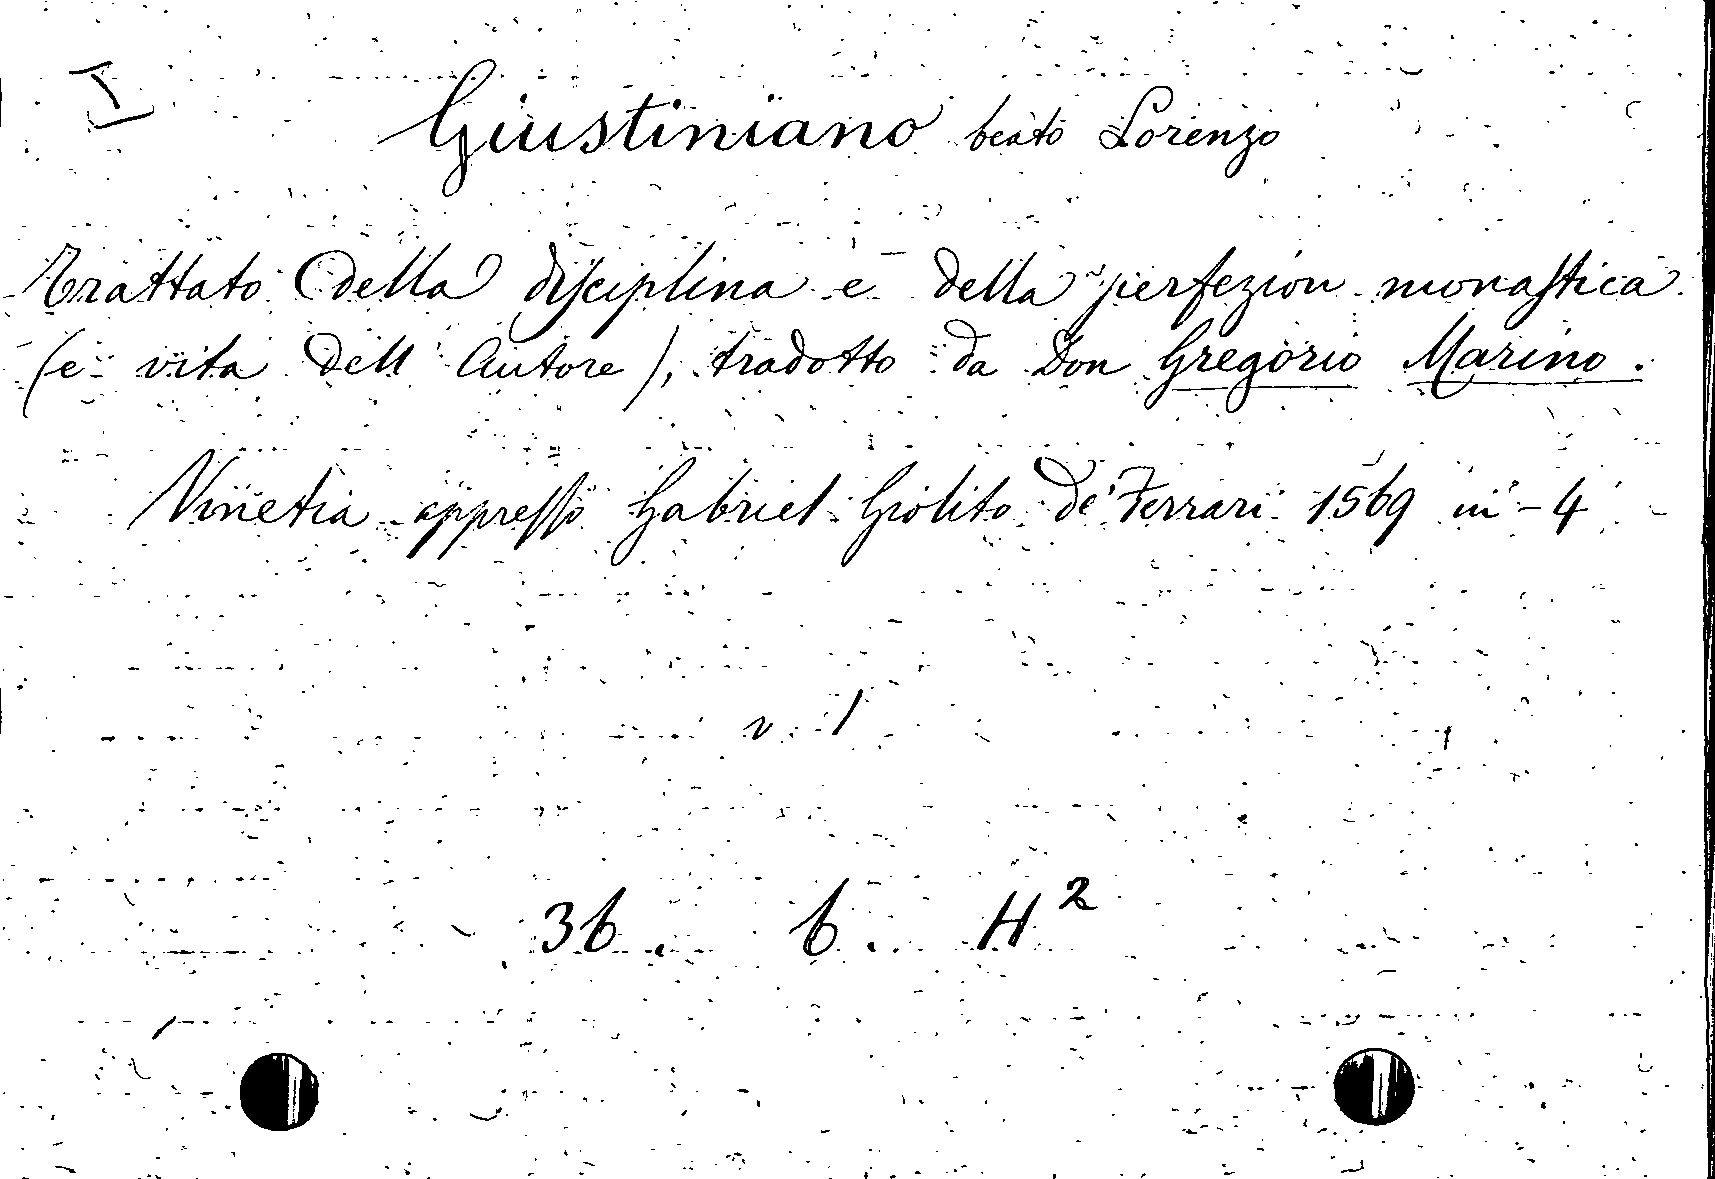 I
Giustiniano beato Lorenzo
Trattato della disciplina e della perfezion monastica
(e vita dell' Autore), tradotto da Don Gregorio Marino.
Vinetia appresso Gabriel Giolito de' Ferrari 1569 in-4
v. 1
36. 6. H²